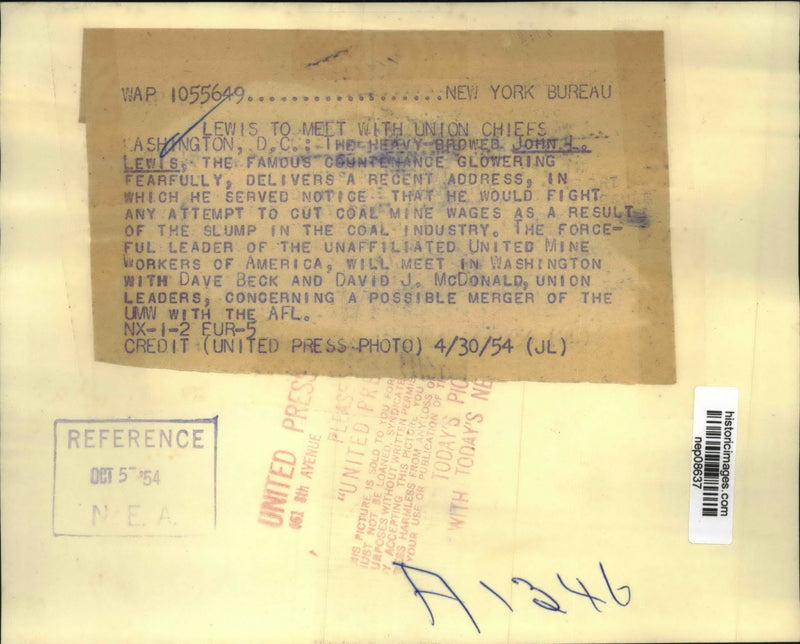 WAP 1055649...................NEW YORK BUREAU
LEWIS TO MEET WITH UNION CHIEFS
WASHINGTON, D.C.: THE HEAVY-BROWED JOHN L.
LEWIS, THE FAMOUS COUNTENANCE GLOWERING
FEARFULLY, DELIVERS A RECENT ADDRESS, IN
WHICH HE SERVED NOTICE THAT HE WOULD FIGHT
ANY ATTEMPT TO CUT COAL MINE WAGES AS A RESULT
OF THE SLUMP IN THE COAL INDUSTRY. THE FORCE-
FUL LEADER OF THE UNAFFILIATED UNITED MINE
WORKERS OF AMERICA, WILL MEET IN WASHINGTON
WITH DAVE BECK AND DAVID J. MCDONALD, UNION
LEADERS, CONCERNING A POSSIBLE MERGER OF THE
UMW WITH THE AFL.
NX-1-2 EUR-5
CREDIT (UNITED PRESS PHOTO) 4/30/54 (JL)
REFERENCE
OCT 5 '54
N. E. A.
UNITED PRESS
461 8th AVENUE
PLEASE
"UNITED PRE
HIS PICTURE IS SOLD TO YOU FOR
UST NOT BE LOANED, SYNDICATE
URPOSES WITHOUT WRITTEN PERMIS
Y ACCEPTING THIS PICTURE, YOU
SS HARMLESS FROM ANY LOSS O
YOUR USE OR PUBLICATION OF T
TODAY'S PIC
WITH TODAY'S NE
historicimages.com
nep08637
A1346